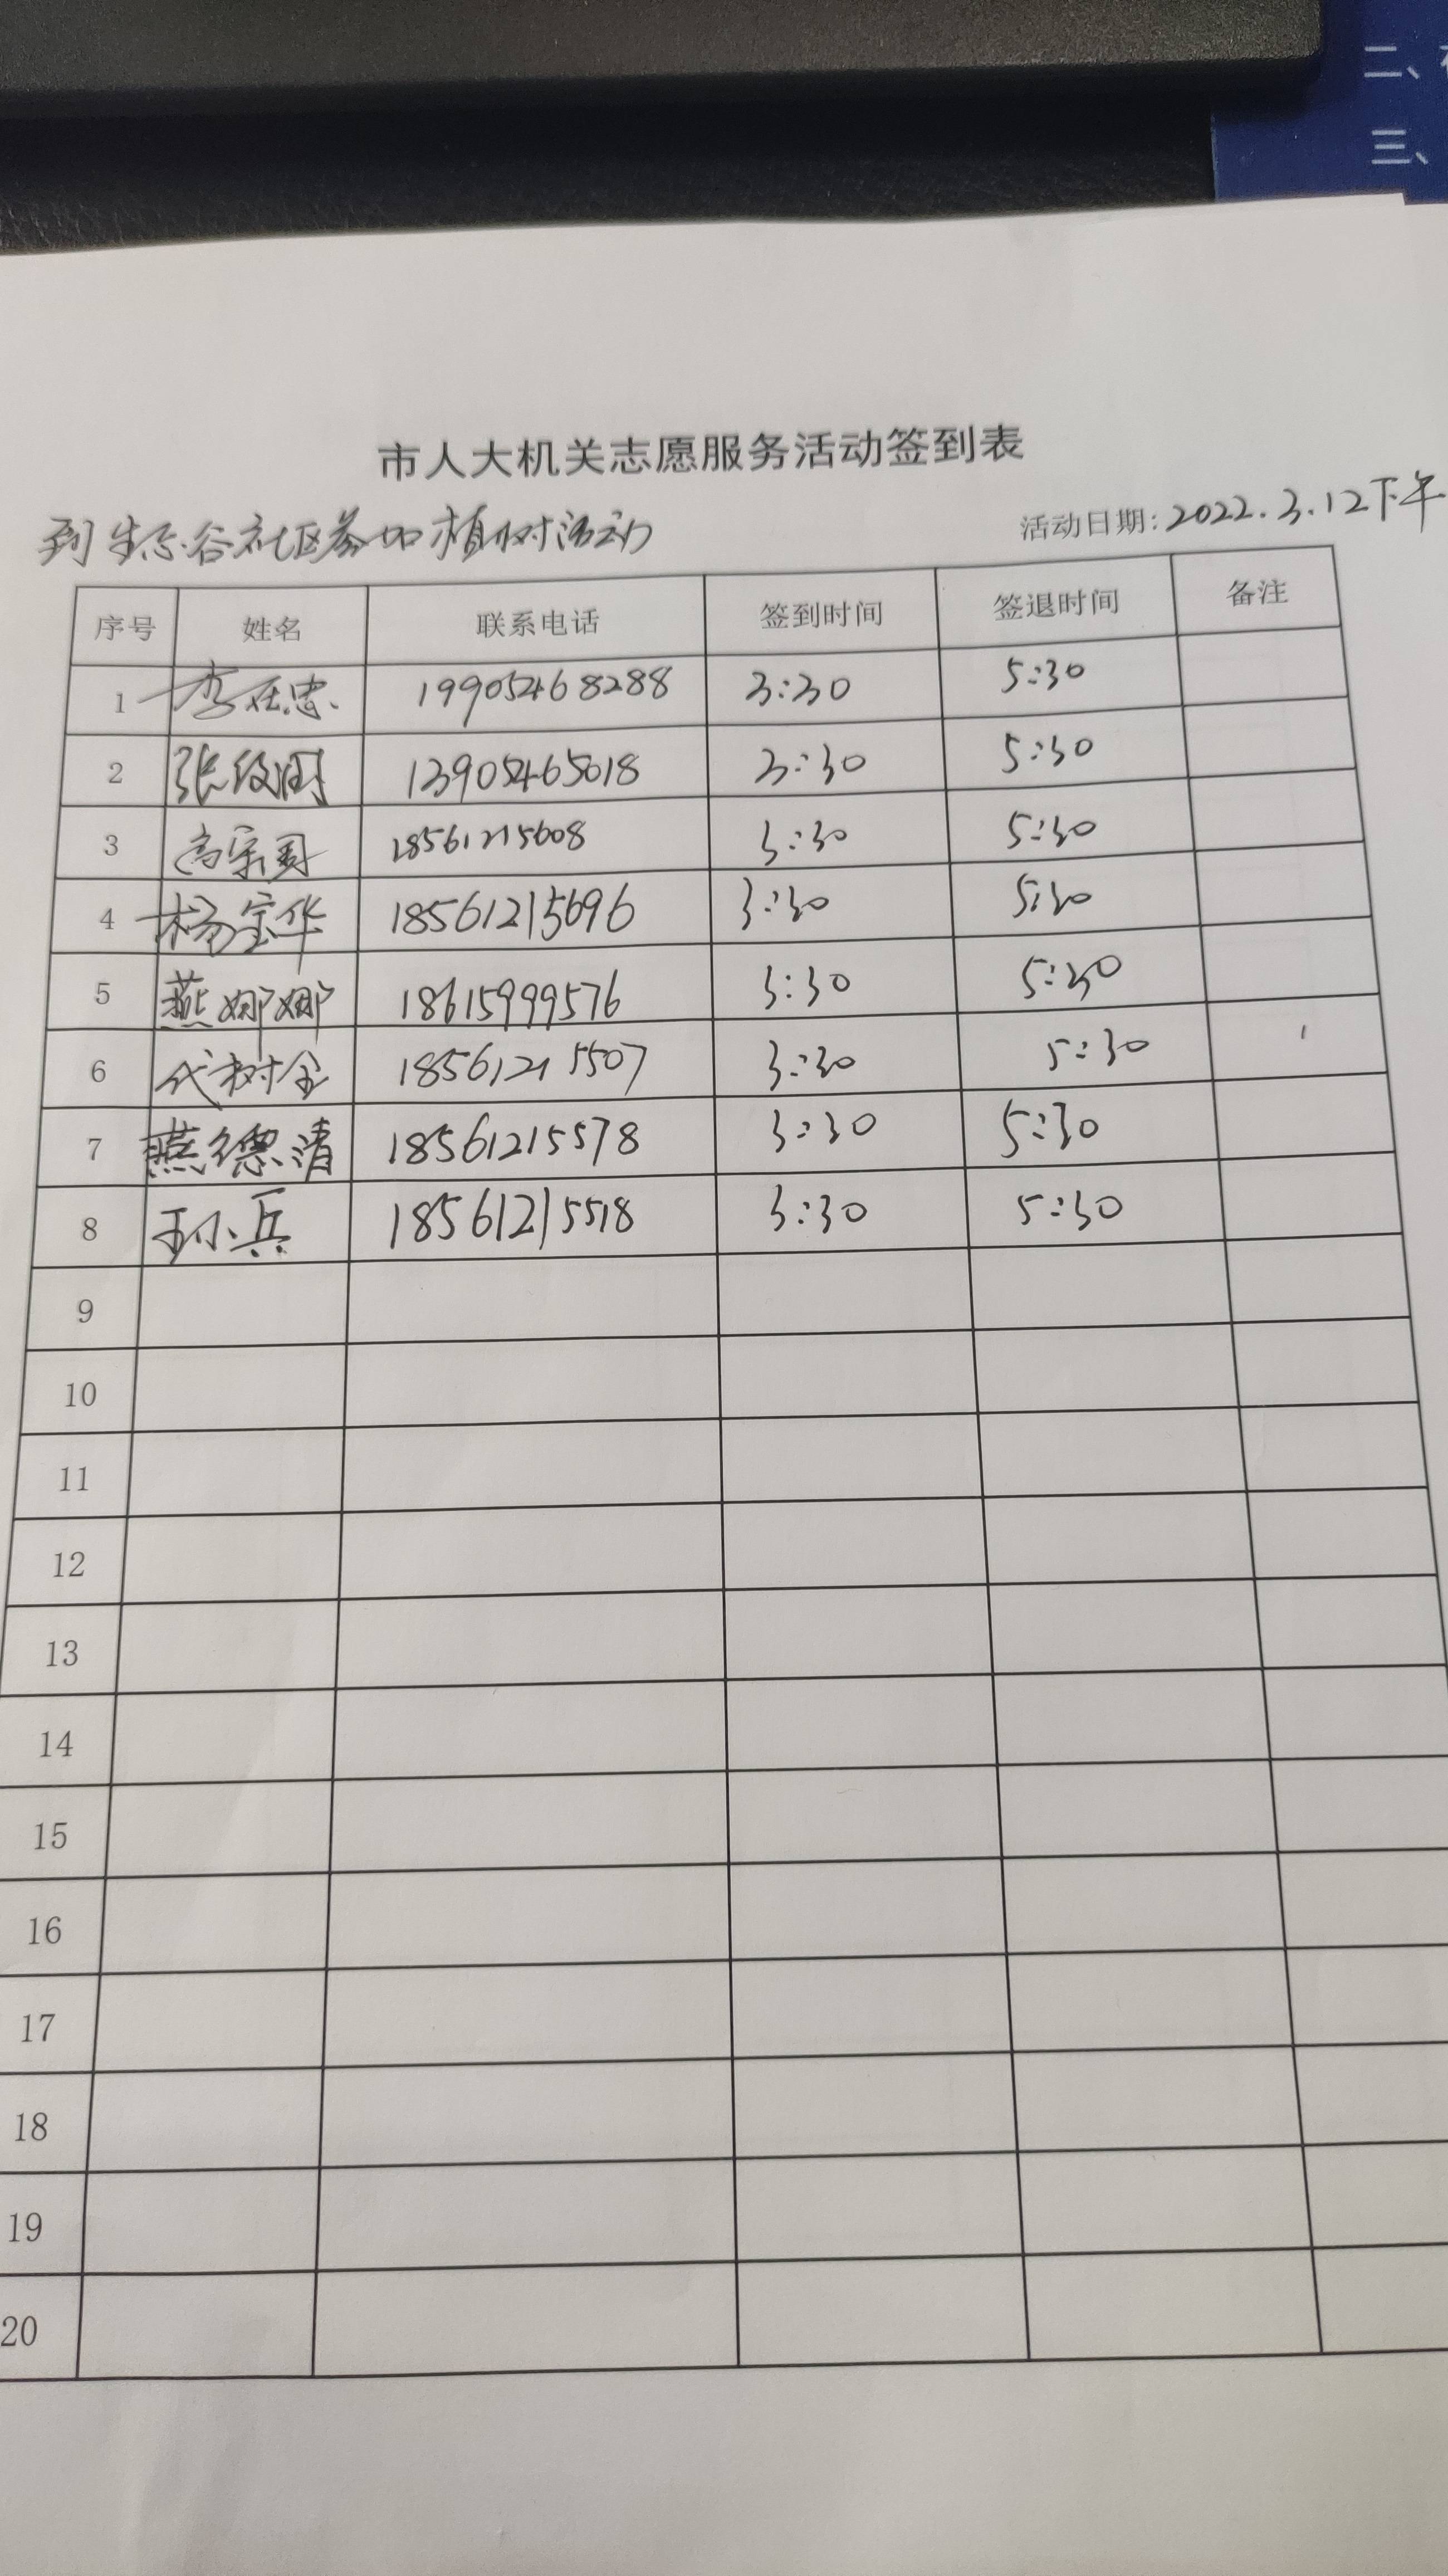 二、
三、
市人大机关志愿服务活动签到表
到生态谷社区参加植树活动 活动日期:2022.3.12下午
序号 姓名 联系电话 签到时间 签退时间 备注
1 李在忠 19905468288 3:30 5:30
2 张 13905465018 3:30 5:30
3 高宗国 18561215608 3:30 5:30
4 杨宝华 18561215696 3:30 5:30
5 燕娜娜 18615999576 3:30 5:30
6 代树全 18561215507 3:30 5:30
7 燕德清 18561215578 3:30 5:30
8 王小兵 18561215518 3:30 5:30
9
10
11
12
13
14
15
16
17
18
19
20